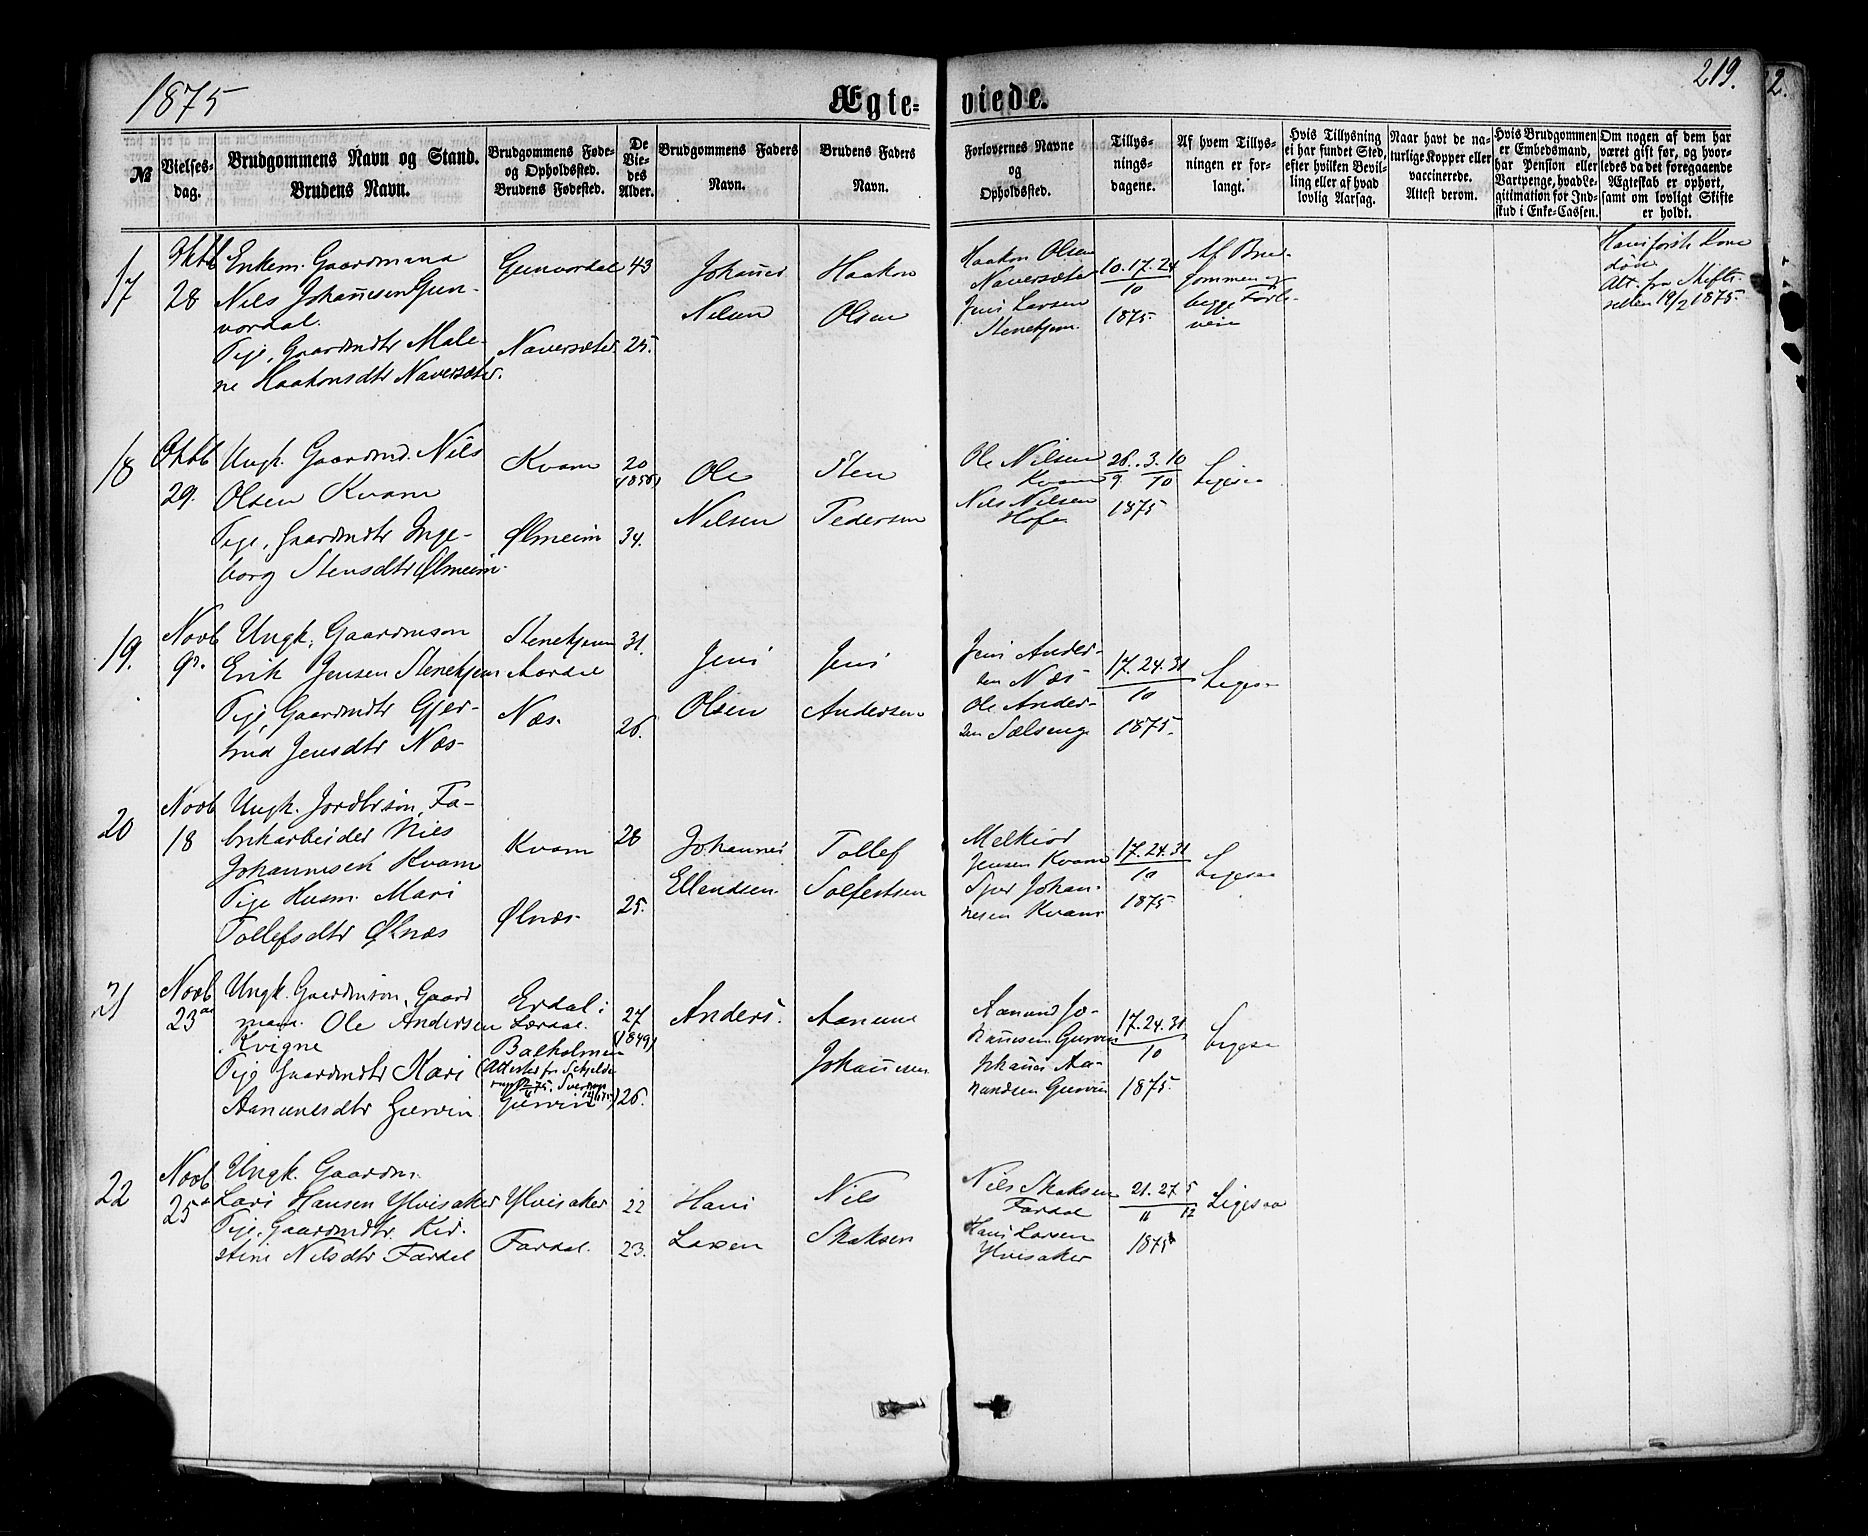 1875
Ægteviede.
219.
2.
№
Vielsesdag.
Brudgommens Navn og Stand.
Brudens Navn.
Brudgommens Føde-
og Opholdssted.
Brudens Fødested.
De
Vie-
des
Alder.
Brudgommens Faders
Navn.
Brudens Faders
Navn.
Forlovernes Navne
og
Opholdssted.
Tillys-
nings-
dagene.
Af hvem Tillys-
ningen er for-
langt.
Hvis Tillysning
ei har fundet Sted,
efter hvilken Bevil-
ling eller af hvad
lovlig Aarsag.
Naar havt de na-
turlige Kopper eller
vaccinerede.
Attest derom.
Hvis Brudgommen
er Embedsmand,
har Pension eller
Vartpenge, hvad Le-
gitimation for Ind-
skud i Enke-Cassen.
Om nogen af dem har
været gift før, og hvor-
ledes da det foregaaende
Ægteskab er ophørt,
samt om lovligt Skifte
er holdt.
17
Oktb
28
Enkem. Gaardmand
Nils Johannesen Gun-
vordal.
Pige, Gaardmdtr Male-
ne Haakonsdtr Naversæter.
Gunvordal
Naversæter
43
25.
Johannes
Nilsen
Haakon
Olsen
Haakon Olsen
Naversæter
Jens Larsen
Stenehjem.
10. 17. 24
10
1875.
Af Brud-
gommen og
begge Forlo-
vere
Hans første Kone
død.
Att. fra Skifte-
retten 19/2 1875.
18
Oktb
29.
Ungk. Gaardmd. Nils
Olsen Kvam
Pige, Gaardmdtr Inge-
borg Stensdtr Ølmeim.
Kvam
Ølmeim
20
34.
Ole
Nilsen
Sten
Pedersen
Ole Nilsen
Kvam
Nils Nilsen
Hofe
26. 3. 10
9 10
1875
Ligesaa
19.
Novb
9.
Ungk. Gaardmson
Erik Jensen Stenehjem
Pige, Gaardmdtr Gjer-
trud Jensdtr Næs.
Stenehjem
Aardal
Næs.
31.
26.
Jens
Olsen
Jens
Andersen
Jens Ander-
sen Næs.
Ole Ander-
sen Sælseng
17. 24. 31
10
1875.
Ligesaa
20
Novb
18
Ungk. Jordbrson, Fa-
brikarbeider Nils
Johannesen Kvam
Pige Husm. Mari
Tollefsdtr Ølnæs
Kvam
Ølnæs.
28
25.
Johannes
Ellendsen
Tollef
Solfestsen
Melkior
Jensen Kvam
Sjur Johan-
nesen Kvam
17. 24. 31
10
1875.
Ligesaa
21
Novb
23
Ungk. Gaardmson, Gaard
mand. Ole Andersen
Kvigne
Pige Gaardmdtr Kari
Aamundsdtr Gurvin
Erdal i
Lærdal.
Balholmen
Gurvin
27
(1849)
26.
Anders
Aamund
Johannesen
Aamund Jo-
hannesen Gurvin
Johannes Aa-
mundsen Gurvin
17. 24. 31
10
1875.
Ligesaa
22
Novb
25
Ungk. Gaardm.
Lars Hansen Ylvisaker
Pige, Gaardmdtr. Kir-
stine Nilsdtr Fardal
Ylvisaker
Fardal.
22
23.
Hans
Larsen
Nils
Skaksen
Nils Skaksen
Fardal
Hans Larsen
Ylvisaker
21. 27 5
11 12
1875
Ligesaa